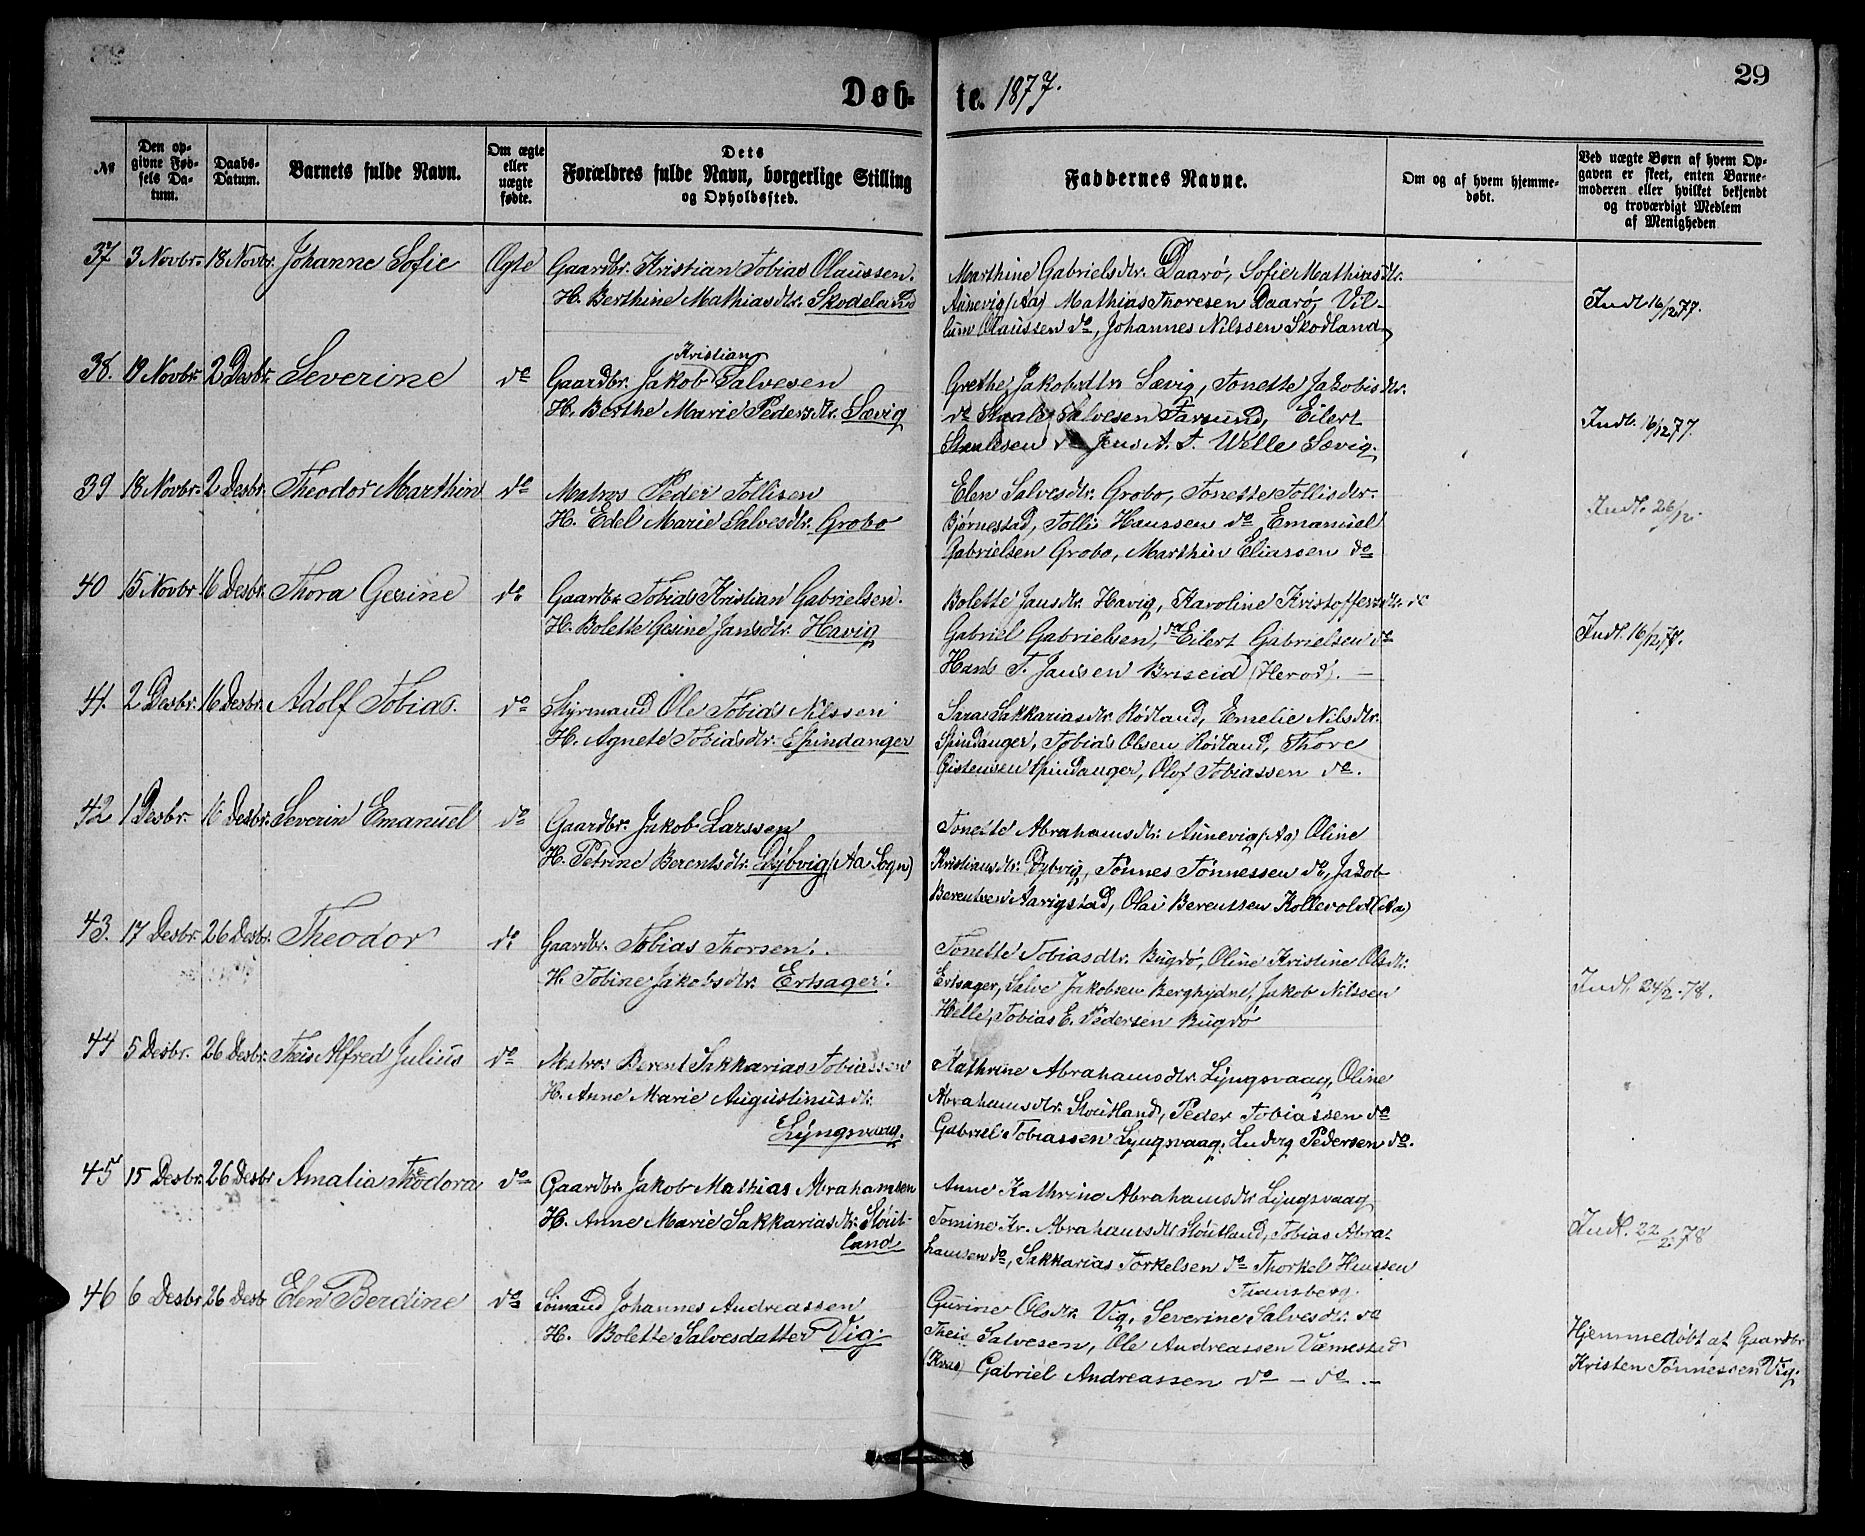 29
Døb-te. 1877.
№
Den opgivne Fødsels Datum.
Daabs-Datum.
Barnets fulde Navn.
Om ægte eller uægte fødte.
Dets Forældres fulde Navn, borgerlige Stilling og Opholdssted.
Faddernes Navne.
Om og af hvem hjemmedøbt.
Ved uægte Børn af hvem Opgaven er skeet, enten Barnemoderen eller hvilket bekjendt og troværdigt Medlem af Menigheden
37 3 Novbr. 18 Novbr. Johanne Sofie Ægte Gaardbr. Kristian Tobias Olaussen.
H. Berthine Mathiasdtr. Skodeland
Marthine Gabrielsdtr. Daarø, Sofie Mathiasdtr.
Aunevig (Aa) Mathias Thoresen Daarø, Vil-
lum Olaussen do, Johannes Nilssen Skodland
Indl. 16/12 77.
38. 19 Novbr. 2 Desbr. Severine do Gaardbr. Jakob Kristian Salvesen
H. Berthe Marie Pedersdtr. Sævig
Grethe Jakobsdtr. Sævig, Tonette Jakobsdtr.
do Staale Salvesen Farsund, Eilert
Staalesen do Jens A. T. Wølle Sævig.
Indl. 16/12 77.
39 18 Novbr. 2 Desbr. Theodor Marthin do Matros Peder Tollisen
H. Edel Marie Salvesdtr. Grobo
Elen Salvesdtr. Grobo, Tonette Tollisdtr.
Bjørnestad, Tolli Hanssen do Emanuel
Gabrielsen Grobo, Marthin Eliassen do
Indl. 26/12.
40 15 Novbr 16 Desbr. Thora Gesine do Gaardbr. Tobias Kristian Gabrielsen.
H. Bolette Gesine Jansdtr. Havig
Bolette Jansdtr. Havig, Karoline Kristoffersdtr. do
Gabriel Gabrielsen, do Eilert Gabrielsen do
Hans T. Jansen Briseid (Herod). —
Indl. 16/12 78.
41. 2 Desbr. 16 Desbr. Adolf Tobias. do Styrmand Ole Tobias Nilssen
H. Agnete Tobiasdtr. Spindanger
Sara Sakkariasdtr. Rødland, Emelie Nilsdtr.
Spindanger, Tobias Olsen Rødland, Thore
Gistensen Spindanger, Olof Tobiassen do.
42 1 Desbr. 16 Desbr. Severin Emanuel do Gaardbr. Jakob Larssen
H. Petrine Berentsdtr. Dybvig (Aa Sogn)
Tonette Abrahamsdtr. Aunevig (Aa) Oline
Kristiansdtr. Dybvig, Tønnes Tønnessen do, Jakob
Berentsen Aarigstad, Olai Berentsen Kollevold (Aa)
43. 17 Desbr. 26 Desbr. Theodor do Gaardbr. Tobias Thorsen.
H. Tobine Jakobsdtr. Ertsager.
Tonette Tobiasdtr. Bugdø, Oline Kristine Olsdtr.
Ertsager, Salve Jakobsen Berghydne, Jakob Nilssen
Helle, Tobias E. Pedersen Bugdø
Indl. 24/2. 78.
44 5 Desbr. 26 Desbr. Theis Alfred Julius do Matros Berent Sakkarias Tobiassen
H. Anne Marie Augustinusdtr.
Lyngsvaag.
Kathrine Abrahamsdtr. Lyngsvaag, Oline
Abrahamsdtr. Sloutland, Peder Tobiassen do
Gabriel Tobiassen Lyngsvaag, Ludvig Pedersen do.
45 15 Desbr. 26 Desbr Amalia Theodora do Gaardbr. Jakob Mathias Abrahamsen
H. Anne Marie Sakkariasdtr. Slout-
land
Anne Kathrine Abrahamsdtr. Lyngsvaag
Tomine Kr. Abrahamsdtr. Sloutland, Tobias Abra-
hamsen do, Sakkarias Torkelsen do Thorkel Hanssen
Tjansberg.
Indl. 22/2 78
46 6 Desbr 26 Desbr Elen Berdine do Sømand Johannes Andreassen
H. Bolette Salvesdatter Vig.
Gurine Olsdtr. Vig, Severine Salvesdtr. do
Theis Salvesen, Ole Andreassen Væmestad
(Kvas) Gabriel Andreassen do – do. –
Hjemmedøbt af Gaardbr.
Kristen Tønnessen Vig.